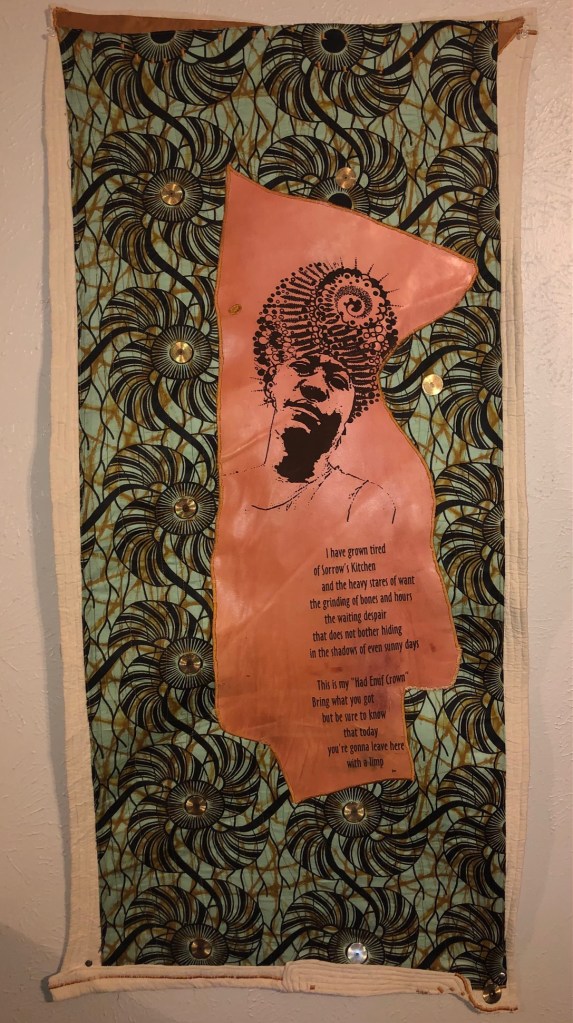 I have grown tired
of Sorrow's Kitchen
and the heavy stares of want
the grinding of bones and hours
the waiting despair
that does not bother hiding
in the shadows of even sunny days
This is my "Had Enuf Crown"
Bring what you got
but be sure to know
that today
you're gonna leave here
with a limp